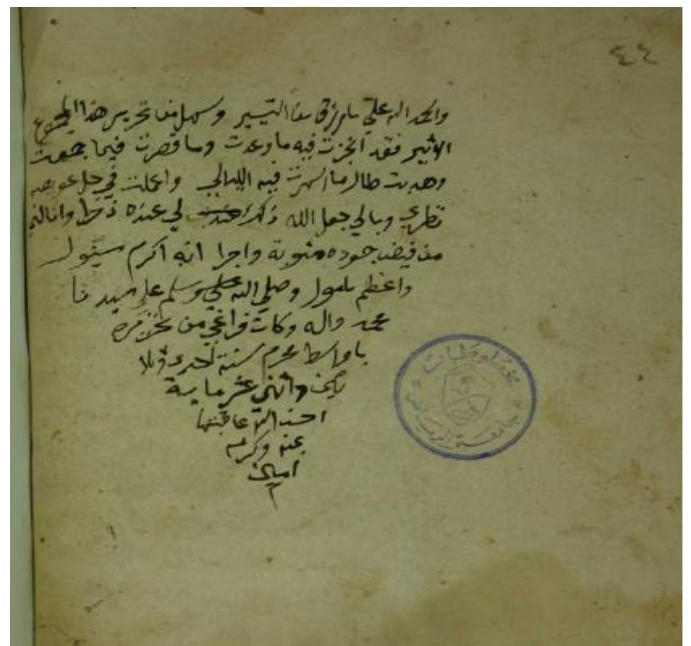 ٤٤
والحمد لله على ما رزق من التيسير وسهل من تحرير هذا المجموع
الاثير فقد انجزت فيه ما وعدت وما قصرت فيما جمعت
وهديت طال ما اسهرت فيه الليالي واعملت في حل عويصه
نظري وبالي جعل الله ذلك لي عنده ذخرا وانالني
من فيض جوده مثوبة واجرا انه اكرم مسئول
واعظم مامول وصلى الله وسلم على سيدنا
محمد واله وكان فراغي من تحريره
باواسط محرم سنة احدى وثلا
ثين واثني عشر ماية
احسن الله عاقبتها
بمنه وكرمه
امين
م
مخطوطات
جامعة الرياض